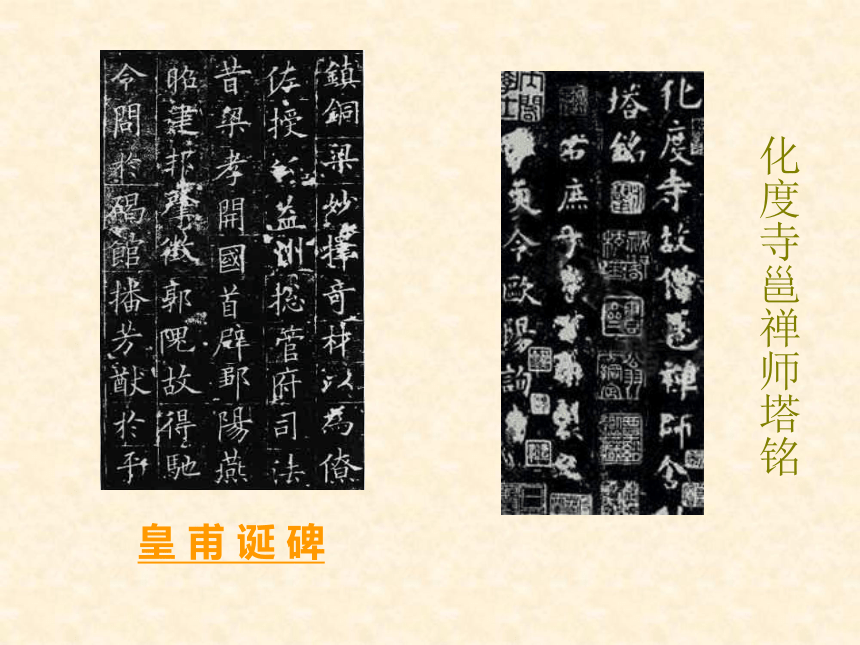 鎮銅梁妙擇奇材以為僚
佐授益州揔管府司法
昔梁孝開國首辟鄒陽燕
昭建邦肇徵郭隗故得馳
令問於碣館播芳猷於平
皇甫诞碑
化度寺故僧邕禪師舍
塔銘
右庶子製文
率更令歐陽詢
化度寺邕禅师塔铭